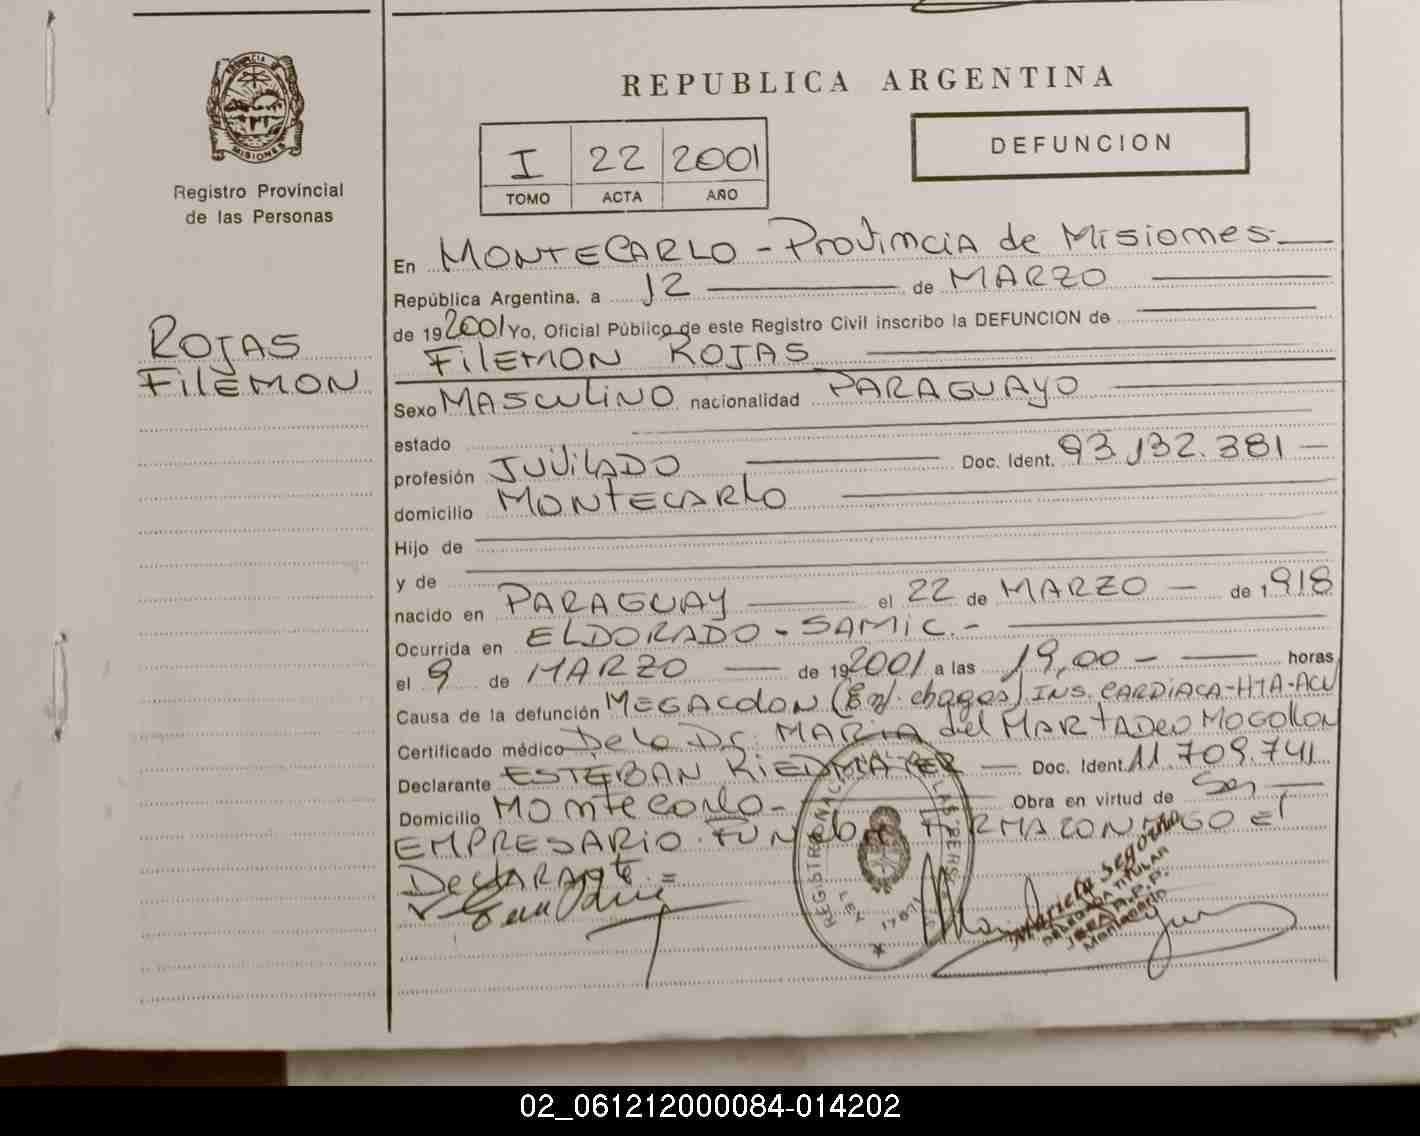 REPUBLICA ARGENTINA
DEFUNCION
I 22 2001
TOMO ACTA AÑO
PROVINCIA DE
MISIONES
Registro Provincial
de las Personas
ROJAS
FILEMON
En MONTECARLO - Provincia de Misiones
República Argentina, a 12 de MARZO
de 19 2001 Yo, Oficial Público de este Registro Civil inscribo la DEFUNCION de
FILEMON ROJAS
Sexo MASCULINO nacionalidad PARAGUAYO
estado
profesión JUVILADO Doc. Ident. 93.132.381 -
domicilio MONTECARLO
Hijo de
y de
nacido en PARAGUAY el 22 de MARZO - de 1918
Ocurrida en ELDORADO - SAMIC.-
el 9 de MARZO de 192001 a las 19,00 - horas
Causa de la defunción MEGACOLON ( chagas) INS. CARDIACA-HTA-ACV
Certificado médico De la Dr. MARIA del MAR TADEO MOGOLLON
Declarante ESTEBAN RIEDMAIER Doc. Ident. 11.709.741
Domicilio Montecarlo - Obra en virtud de Ser
EMPRESARIO FUNEBRE FIRMA CONMIGO EL
DECLARANTE =
Mariela Segovia
DELEGADA TITULAR
Montecarlo
02_061212000084-014202